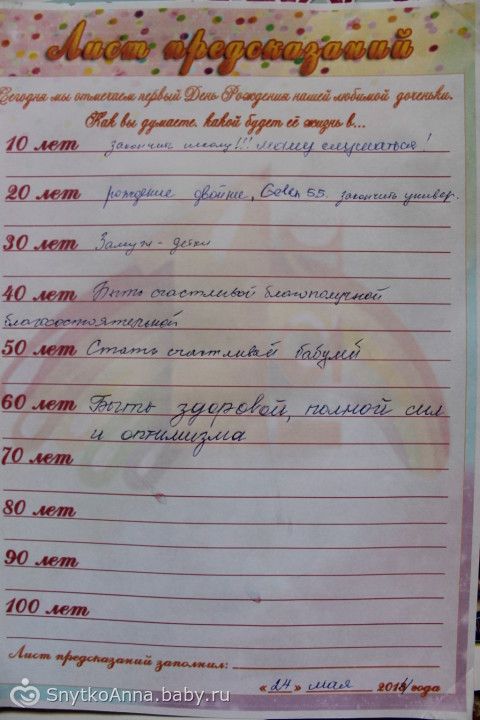 Лист предсказаний
Сегодня мы отмечаем первый День Рождения нашей любимой доченьки.
Как вы думаете, какой будет её жизнь в...
10 лет закончит школу!!! маму слушаться!
20 лет рождение двойни, закончить универ.
30 лет Замуж - детки
40 лет Быть счастливой благополучной
благосостоятельной
50 лет Стать счастливой бабулей
60 лет Быть здоровой, полной сил
и оптимизма
70 лет
80 лет
90 лет
100 лет
Лист предсказаний заполнил:
«24» мая 2014 года
SnytkoAnna.baby.ru